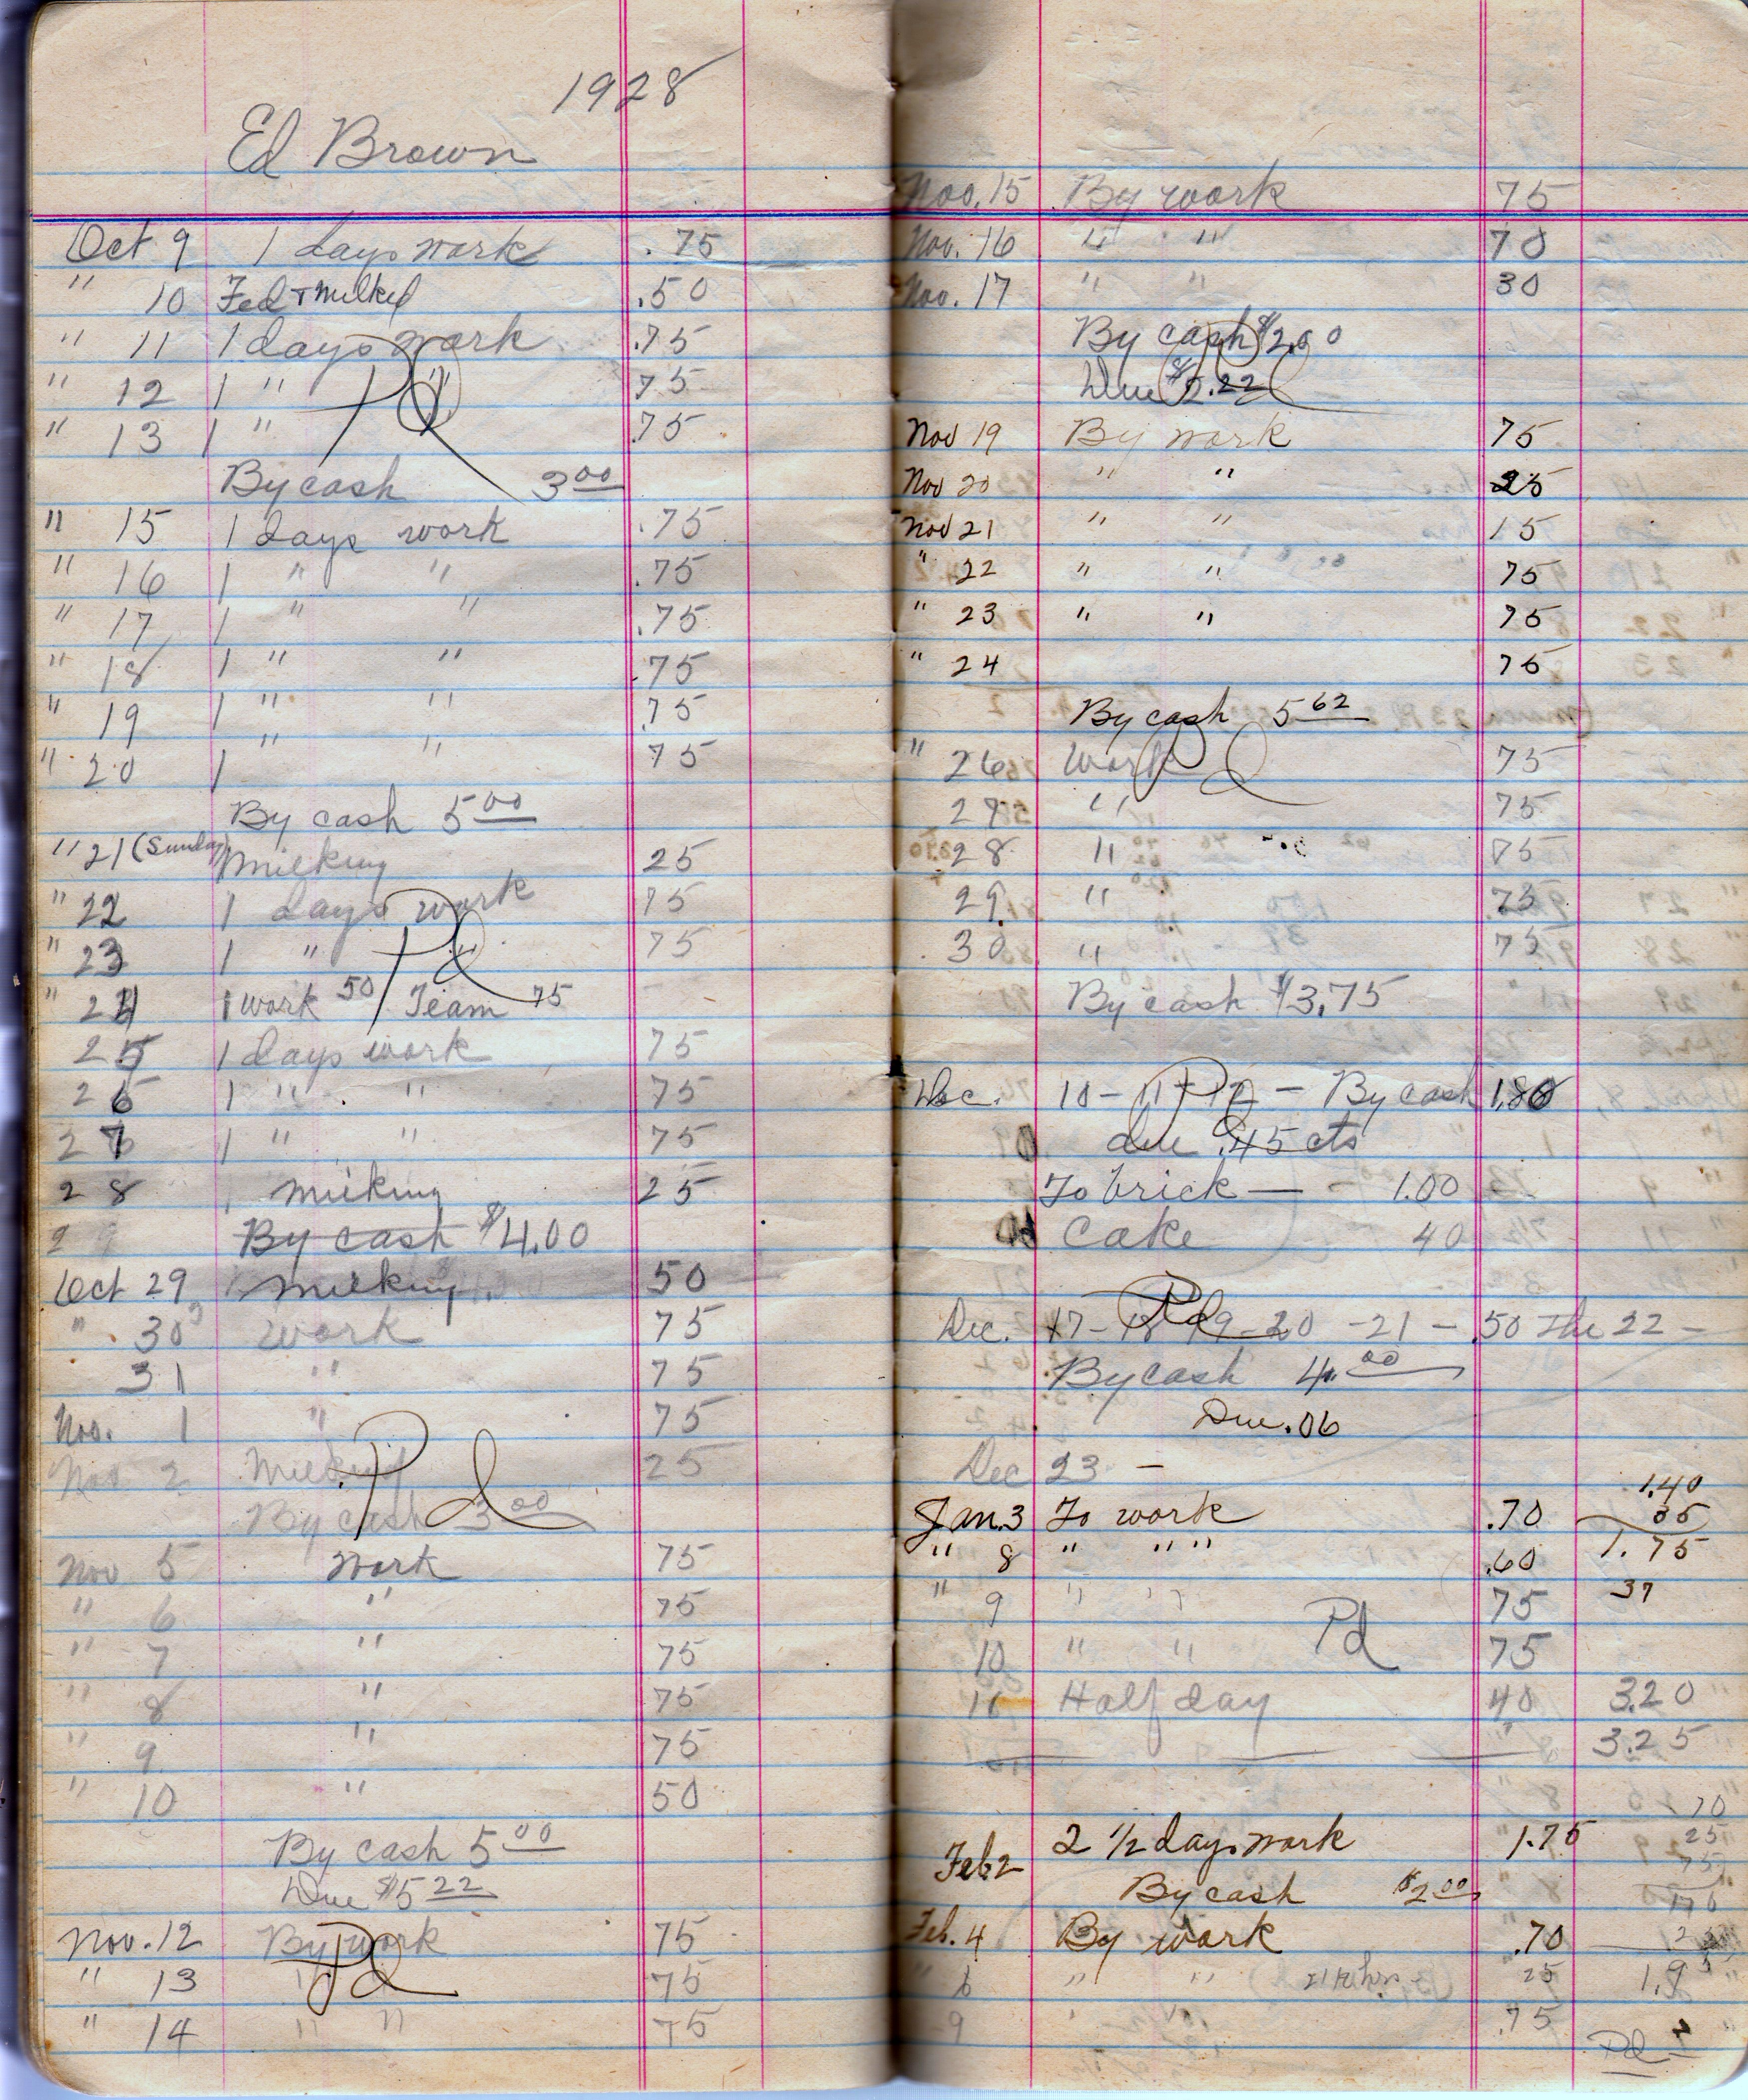 1928
Ed Brown
Oct 9 1 days work .75
" 10 Fed + milked .50
" 11 1 days work .75
" 12 1 " " 75
" 13 1 " .75
Pd
By cash 3 00
" 15 1 days work .75
" 16 1 " " .75
" 17 1 " " .75
" 18 1 " " .75
" 19 1 " " 75
" 20 1 " " 75
By cash 5 00
" 21 (Sunday) milking 25
" 22 1 days work 75
" 23 1 " " 75
Pd
" 24 1 work 50 Team 75
25 1 days work 75
26 1 " " 75
27 1 " " 75
28 milking 25
29 By cash $4.00
Oct 29 milking 50
" 30 work 75
31 " 75
Nov. 1 " 75
Nov 2 milking 25
Pd
By cash 3 00
Nov 5 work 75
" 6 " 75
" 7 " 75
" 8 " 75
" 9 " 75
" 10 " 50
By cash 5 00
Due $5 22
Nov. 12 By work 75
Pd
" 13 " " 75
" 14 " " 75
Nov. 15 By work 75
Nov. 16 " " 70
Nov. 17 " " 30
By cash $2.00
Pd
Due $2.22
Nov 19 By work 75
Nov 20 " " 25
Nov 21 " " 15
" 22 " " 75
" 23 " " 75
" 24 75
By cash 5 62
Pd
" 26 work 75
27 " 75
28 " 75
29 " 75
30 " 75
By cash $3.75
Dec. 10 - 11 - 12 - By cash 1.80
Pd
due .45 cts
To brick — 1.00
Cake 40
Pd
Dec. 17 - 18 19 - 20 - 21 - .50 the 22 -
By cash 4. 00
Due .06
Dec 23 -
1.40
Jan. 3 To work .70 35
" 8 " " " .60 1.75
" 9 " " 75 37
Pd
10 " " 75
11 Half day 40 3.20
3.25
70
2 1/2 days work 1.75 25
Feb 2
By cash $2 00
Feb. 4 By work .70
" 6 " " 2 1/2 hrs 25 1.9
9 " .75
Pd